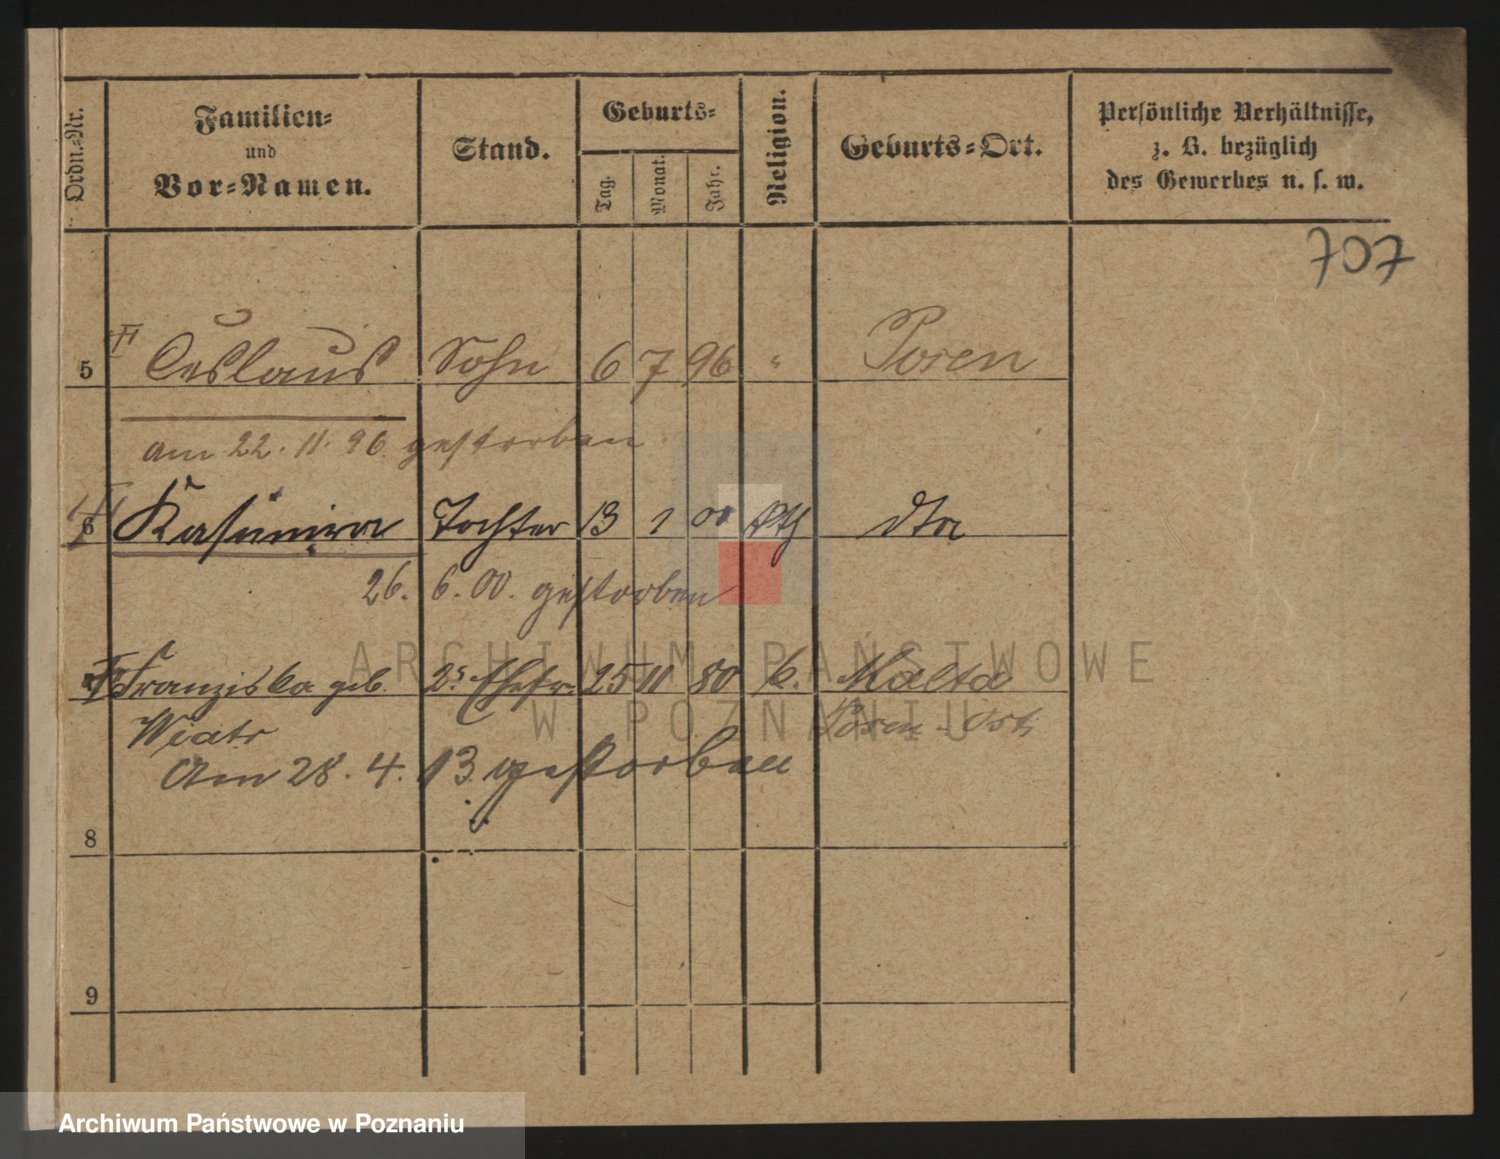 Ordn.-Nr.
Familien-
und
Vor-Namen.
Stand.
Geburts-
Tag.
Monat.
Jahr.
Religion.
Geburts-Ort.
Persönliche Verhältnisse,
z. B. bezüglich
des Gewerbes u. s. w.
707
5 Ceslaus Sohn 6 7 96 " Posen
am 22. 11. 96 gestorben
6 Kasimira Tochter 13 1 00 kth dto
26. 6. 00. gestorben
Franziska geb. 2. Ehefr. 25 11 80 k. Malta
Wiatr Posen-Ost
Am 28. 4. 13 gestorben
8
9
ARCHIWUM PAŃSTWOWE
W POZNANIU
Archiwum Państwowe w Poznaniu